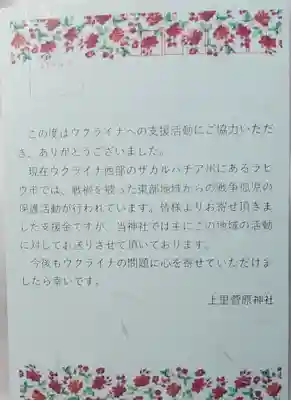 この度はウクライナへの支援活動にご協力いただ
き、ありがとうございました。
現在ウクライナ西部のザカルパチア州にあるラヒ
ウ市では、戦禍を被った東部地域からの戦争孤児の
保護活動が行われています。皆様よりお寄せ頂きま
した支援金ですが、当神社では主にこの地域の活動
に対してお送りさせて頂いております。
今後もウクライナの問題に心を寄せていただけま
したら幸いです。
上里菅原神社